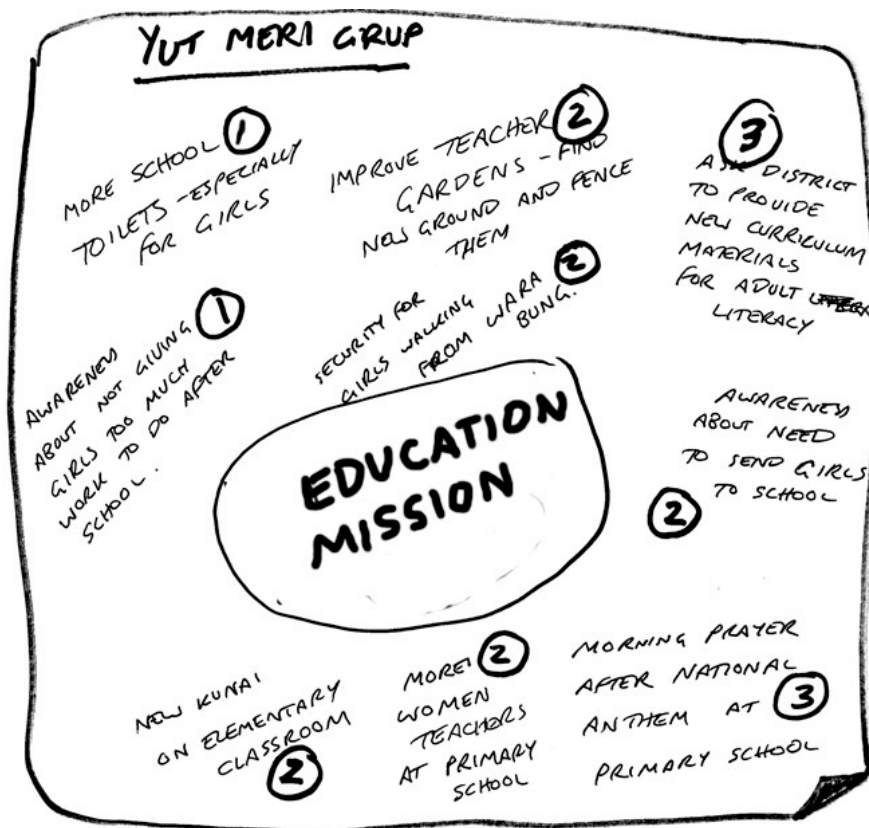 YUT MERI GRUP
MORE SCHOOL 1
TOILETS - ESPECIALLY
FOR GIRLS
IMPROVE TEACHER 2
GARDENS - FIND
NEW GROUND AND FENCE
THEM
3
ASK DISTRICT
TO PROVIDE
NEW CURRICULUM
MATERIALS
FOR ADULT
LITERACY
AWARENESS
ABOUT NOT GIVING 1
GIRLS TOO MUCH
WORK TO DO AFTER
SCHOOL.
SECURITY FOR
GIRLS WALKING
FROM WARA 2
BUNG.
EDUCATION
MISSION
AWARENESS
ABOUT NEED
TO SEND GIRLS
TO SCHOOL
2
NEW KUNAI
ON ELEMENTARY
CLASSROOM
2
MORE 2
WOMEN
TEACHERS
AT PRIMARY
SCHOOL
MORNING PRAYER
AFTER NATIONAL
ANTHEM AT 3
PRIMARY SCHOOL